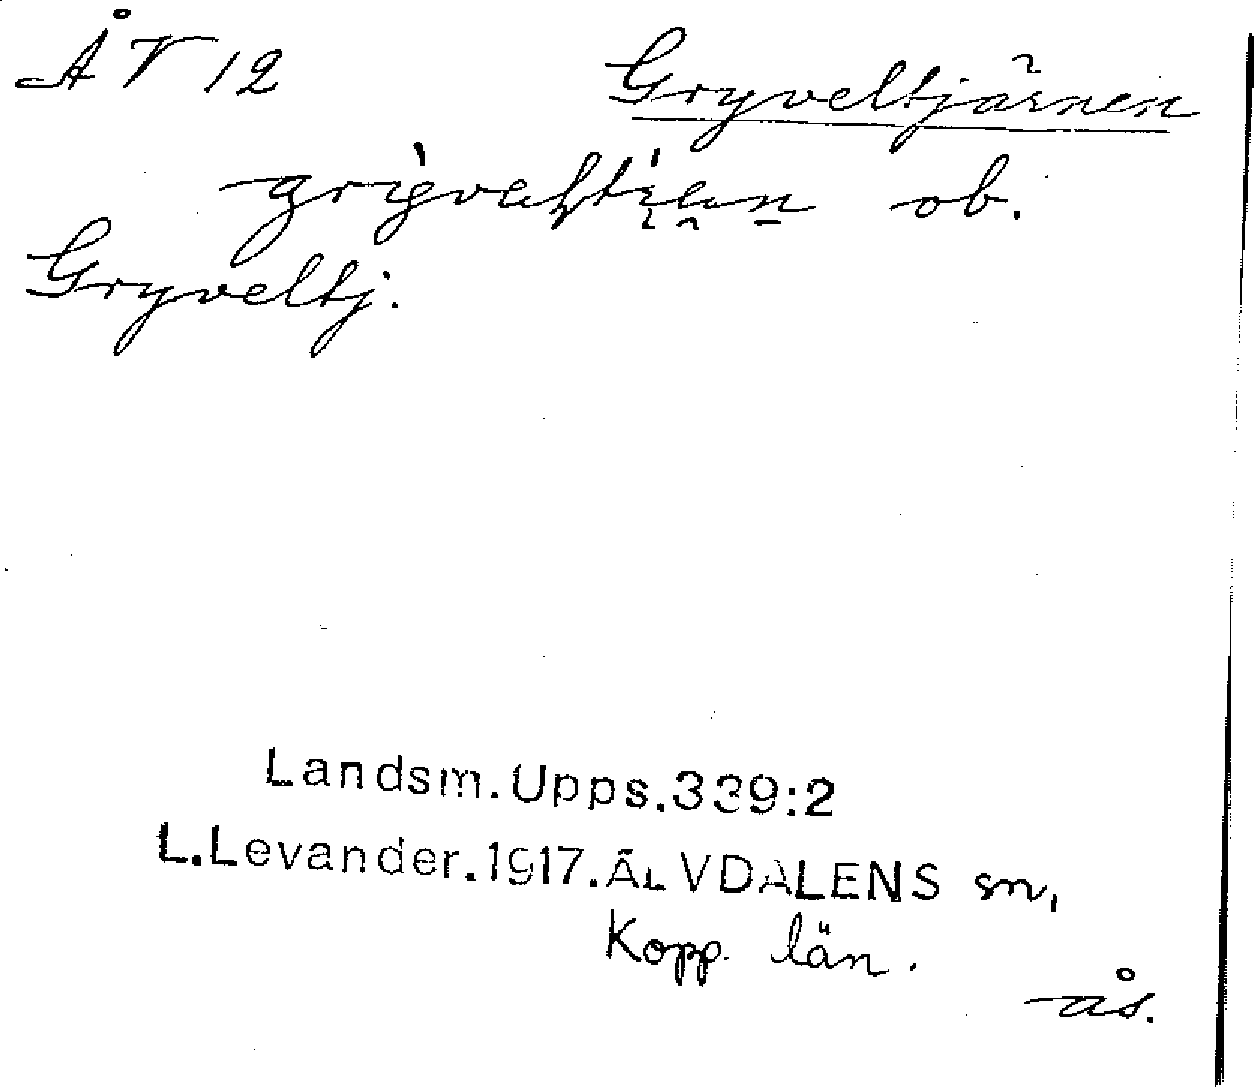 ÅV 12
Gryveltjärnen
ob.
Gryveltj.
Landsm.Upps.339:2
L.Levander.1917.ÄLVDALENS sn,
Kopp. län.
ås.